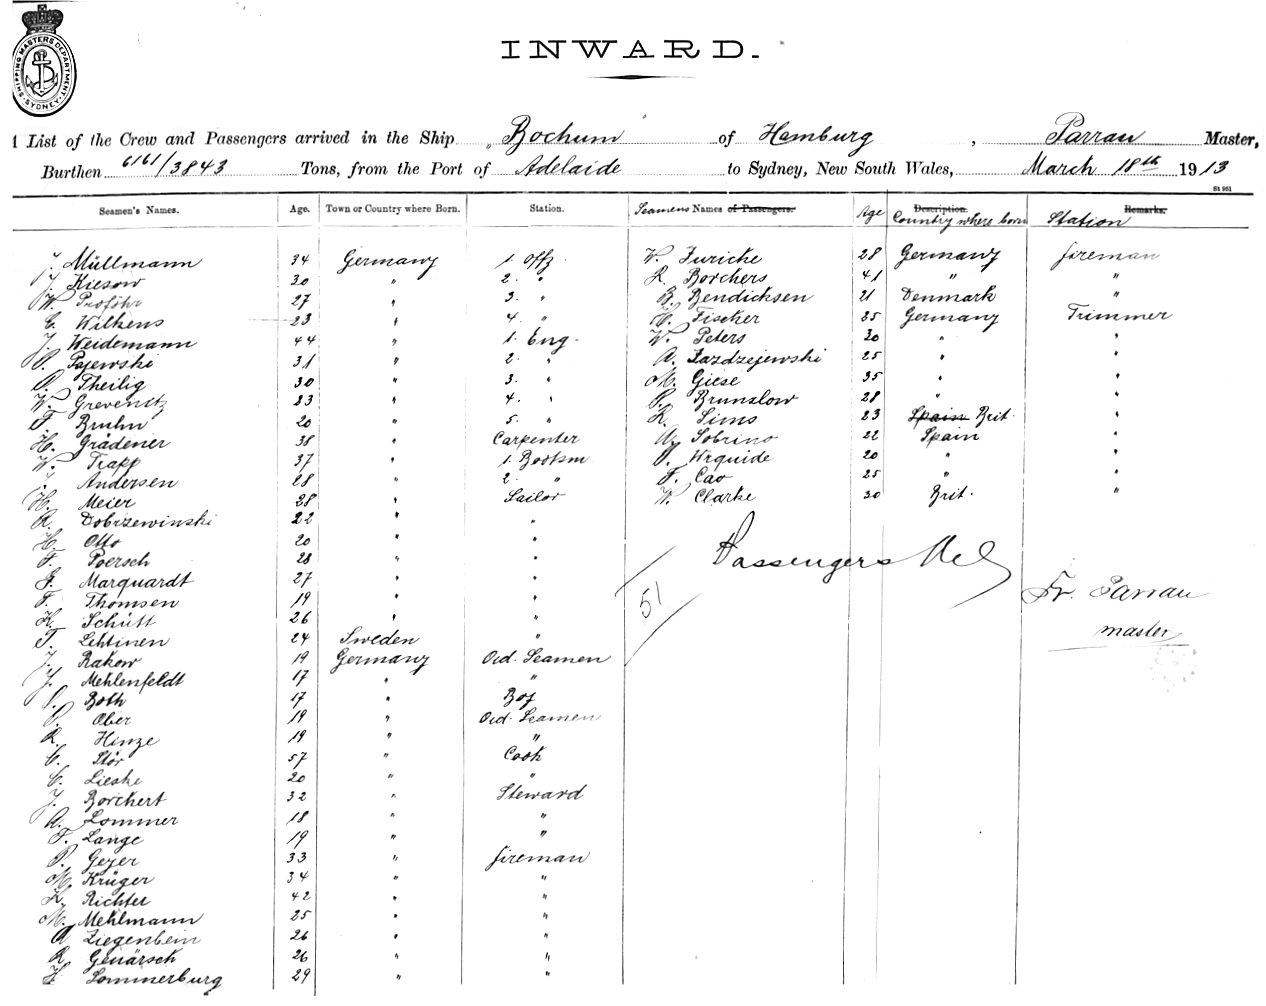 SHIPPING MASTERS DEPARTMENT SYDNEY
INWARD.
List of the Crew and Passengers arrived in the Ship Bochum of Hamburg, Parrau Master,
Burthen 6161/3843 Tons, from the Port of Adelaide to Sydney, New South Wales, March 18th 1913
St 961
Seamen's Names. Age. Town or Country where Born. Station. Seamens Names of Passengers. Age Description. Country where born Remarks. Station
J. Müllmann 34 Germany 1 Offz. W. Furicke 28 Germany fireman
J. Kiesow 30 " 2. " R. Borchers 41 " "
W. Proföhr 27 " 3. " B. Bendicksen 21 Denmark "
C. Wilkens 23 " 4. " C. Fischer 25 Germany Trimmer
J. Weidemann 44 " 1. Eng. W. Peters 20 " "
P. Pajewski 31 " 2. " A. Lazdzejewski 25 " "
O. Theilig 30 " 3. " M. Giese 35 " "
W. Grevenitz 23 " 4. " P. Brunslow 28 " "
F. Bruhn 20 " 5. " R. Sims 23 Spain Brit. "
H. Grädener 38 " Carpenter A. Sobrino 22 Spain "
W. Trapp 37 " 1. Bootsm P. Urquide 20 " "
J. Andersen 28 " 2. " F. Cao 25 " "
H. Meier 28 " Sailor W. Clarke 30 Brit. "
R. Dobrzewinski 22 " "
H. Otto 20 " "
F. Poersch 28 " "
G. Marquardt 27 " "
F. Thomsen 19 " "
H. Schütt 26 " "
T. Lehtinen 24 Sweden "
J. Rakow 19 Germany Ord. Seamen
J. Mehlenfeldt 17 " "
P. Both 17 " Boy
P. Ober 19 " Ord. Seamen
R. Hinze 19 " "
C. Stör 57 " Cook
C. Lieske 20 " "
J. Borchert 32 " Steward
A. Lommer 18 " "
F. Lange 19 " "
P. Geyer 33 " fireman
M. Krüger 34 " "
K. Richter 42 " "
M. Mehlmann 25 " "
A. Ziegenbein 26 " "
R. Genärsch 26 " "
H. Sommerburg 29 " "
Passengers Nel
51
Fr. Parrau
master